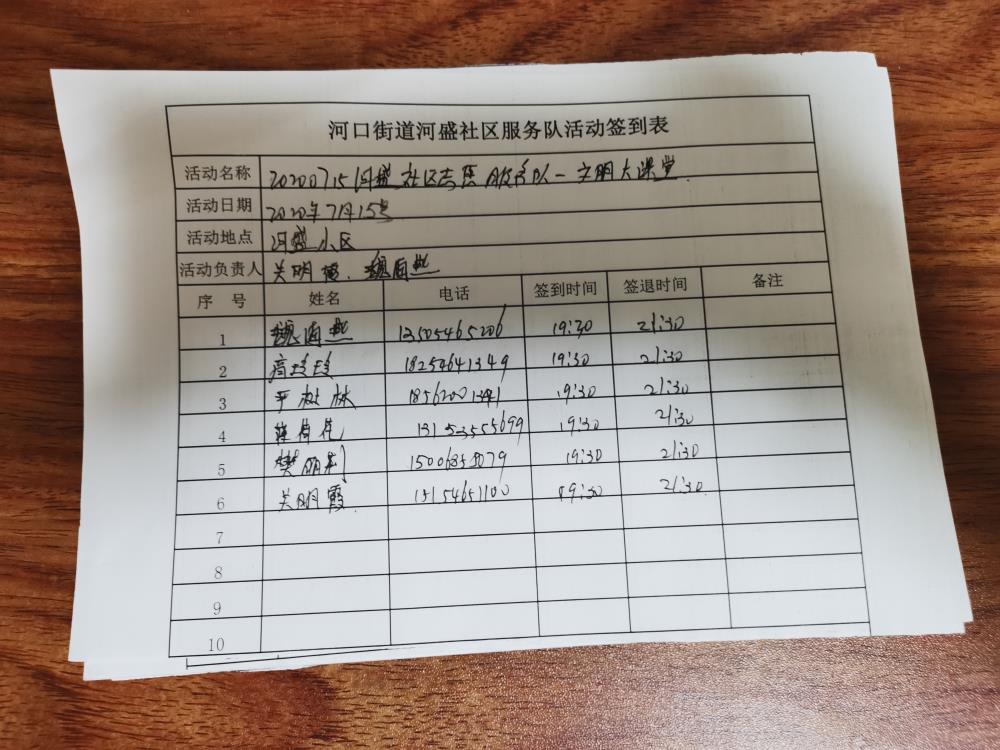 河口街道河盛社区服务队活动签到表
活动名称 20200715河盛社区志愿服务队—文明大课堂
活动日期 2020年7月15号
活动地点 河盛小区
活动负责人 关明霞、魏海燕
序号 姓名 电话 签到时间 签退时间 备注
1 魏海燕 13505465206 19:30 21:30
2 高珍珍 18254641349 19:30 21:30
3 林 19:30 21:30
4 19:30 21:30
5 樊丽利 19:30 21:30
6 关明霞 15154651100 19:30 21:30
7
8
9
10